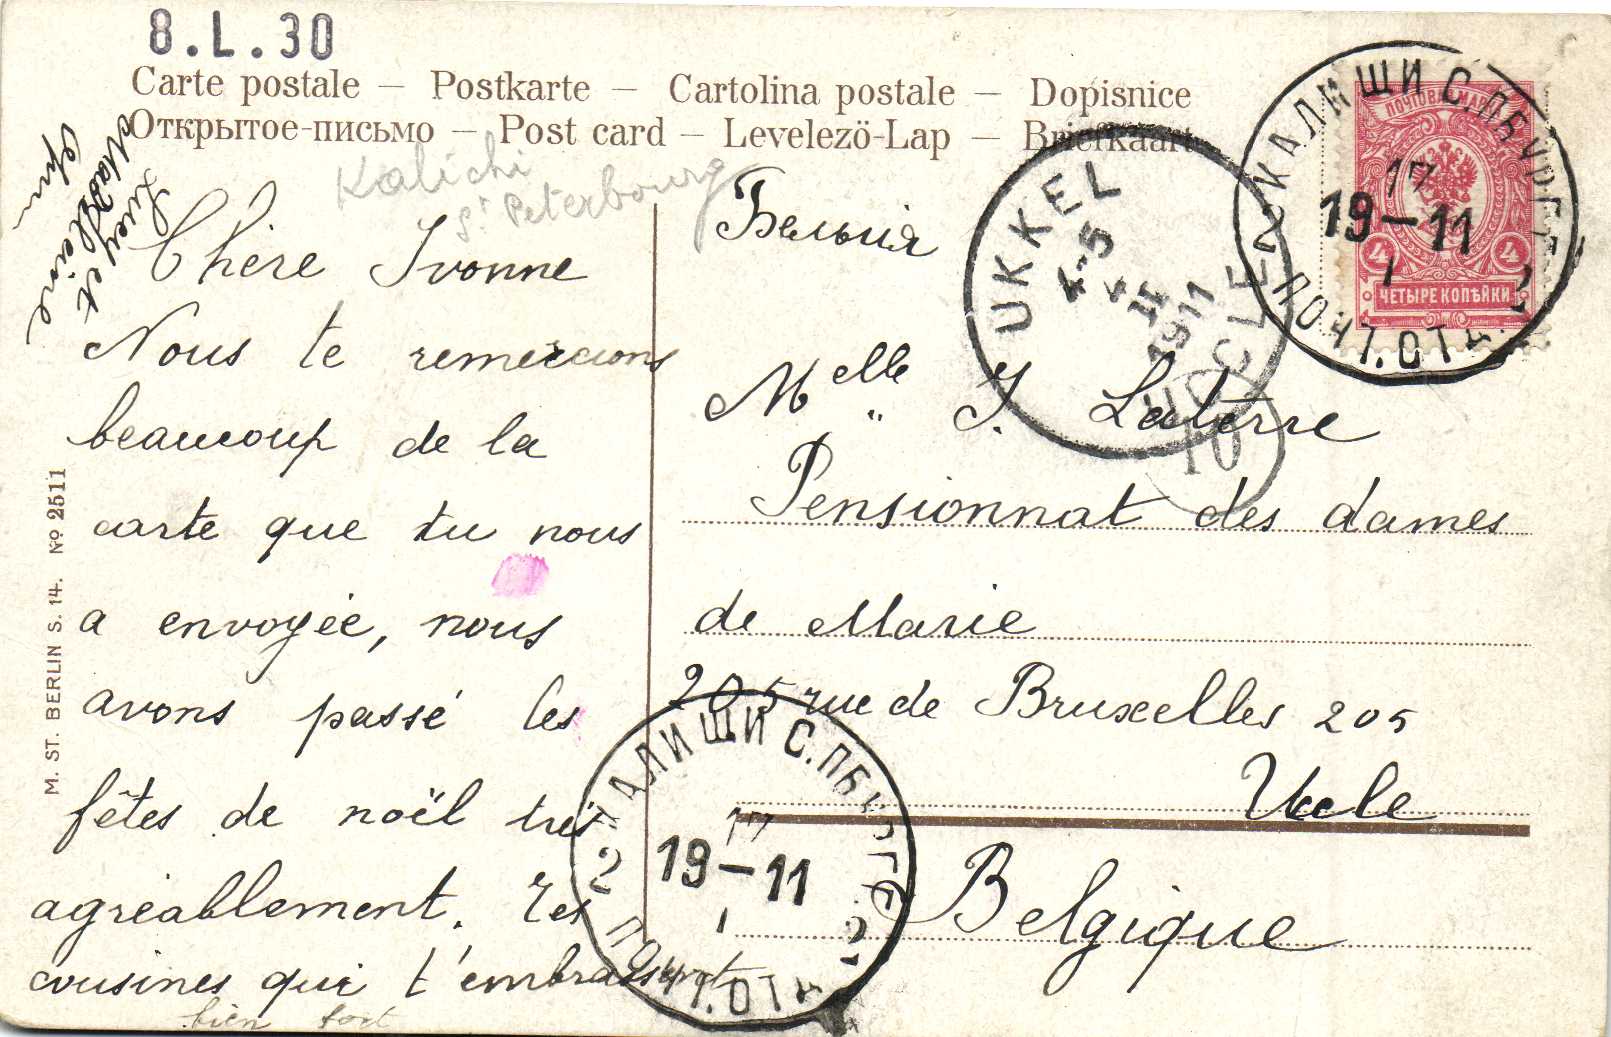 8.L.30
Carte postale – Postkarte – Cartolina postale – Dopisnice
Открытое-письмо – Post card – Levelező-Lap – Briefkaart
Kalichi
St Peterbourg
Chère Ivonne
Nous te remercions
beaucoup de la
carte que tu nous
a envoyée, nous
avons passé les
fêtes de noël très
agréablement. Tes
cousines qui t'embrassent
bien fort
Lucy et
Madeleine
M. ST. BERLIN S. 14. No 2511
Бельгія
Melle Y. Laterre
Pensionnat des dames
de Marie
205 rue de Bruxelles 205
Uccle
Belgique
UKKEL
4-5
4
II
1911
UCCLE
10
КАЛИЩИ С.ПБУРГ.Г.
17
19–11
I
2 ПОЧТ.ОТД. 2
ПОЧТОВАЯ МАРКА
4 4
ЧЕТЫРЕ КОПѢЙКИ
КАЛИЩИ С.ПБУРГ.Г.
17
19–11
I
2 ПОЧТ.ОТД. 2